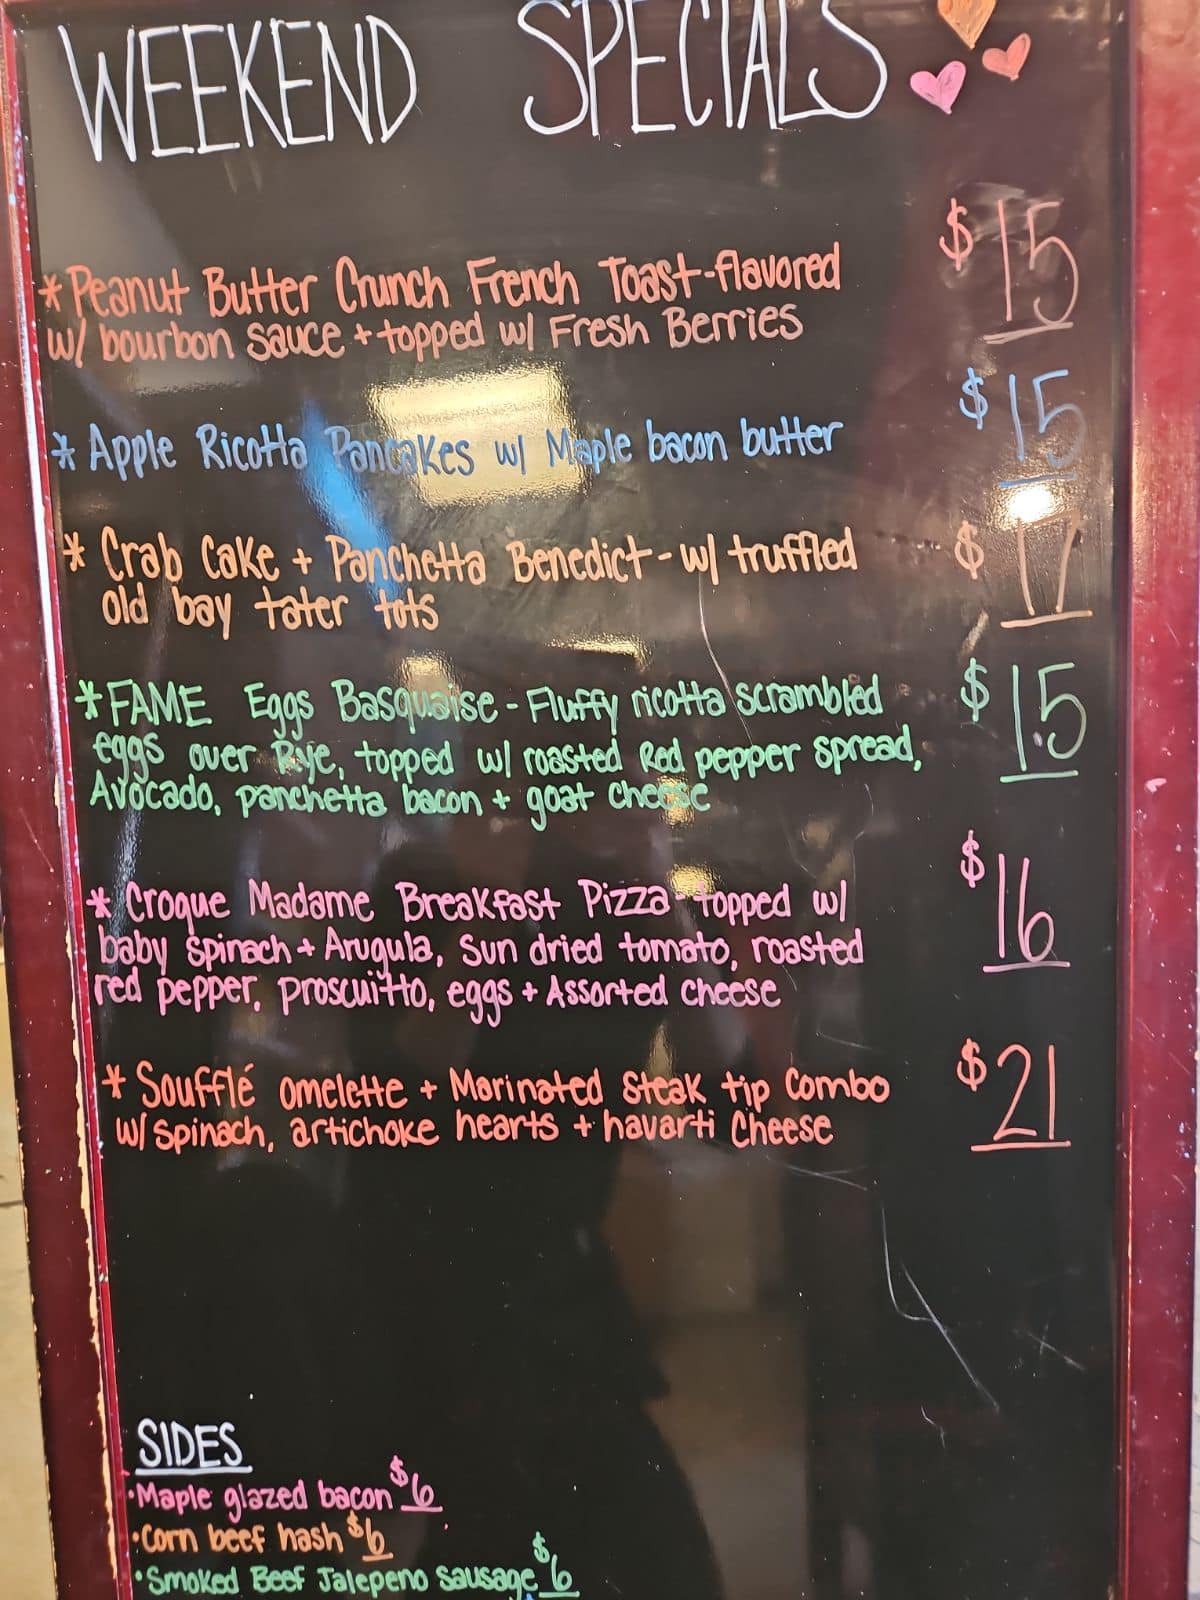 WEEKEND SPECIALS
$15
*Peanut Butter Crunch French Toast-flavored
w/ bourbon sauce + topped w/ Fresh Berries
$15
* Apple Ricotta Pancakes w/ Maple bacon butter
$17
* Crab Cake + Panchetta Benedict - w/ truffled
old bay tater tots
$15
*FAME Eggs Basquaise - Fluffy ricotta scrambled
eggs over Rye, topped w/ roasted Red pepper spread,
Avocado, panchetta bacon + goat cheese
$16
* Croque Madame Breakfast Pizza - topped w/
baby spinach + Arugula, Sun dried tomato, roasted
red pepper, proscuitto, eggs + Assorted cheese
$21
* Soufflé omelette + Marinated steak tip Combo
w/ spinach, artichoke hearts + havarti Cheese
SIDES
•Maple glazed bacon $6
•Corn beef hash $6
•Smoked Beef Jalepeno sausage $6